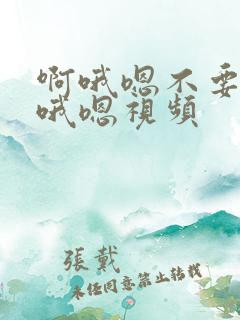 啊哦嗯不要
哦嗯视频
張戴
未经同意禁止转载